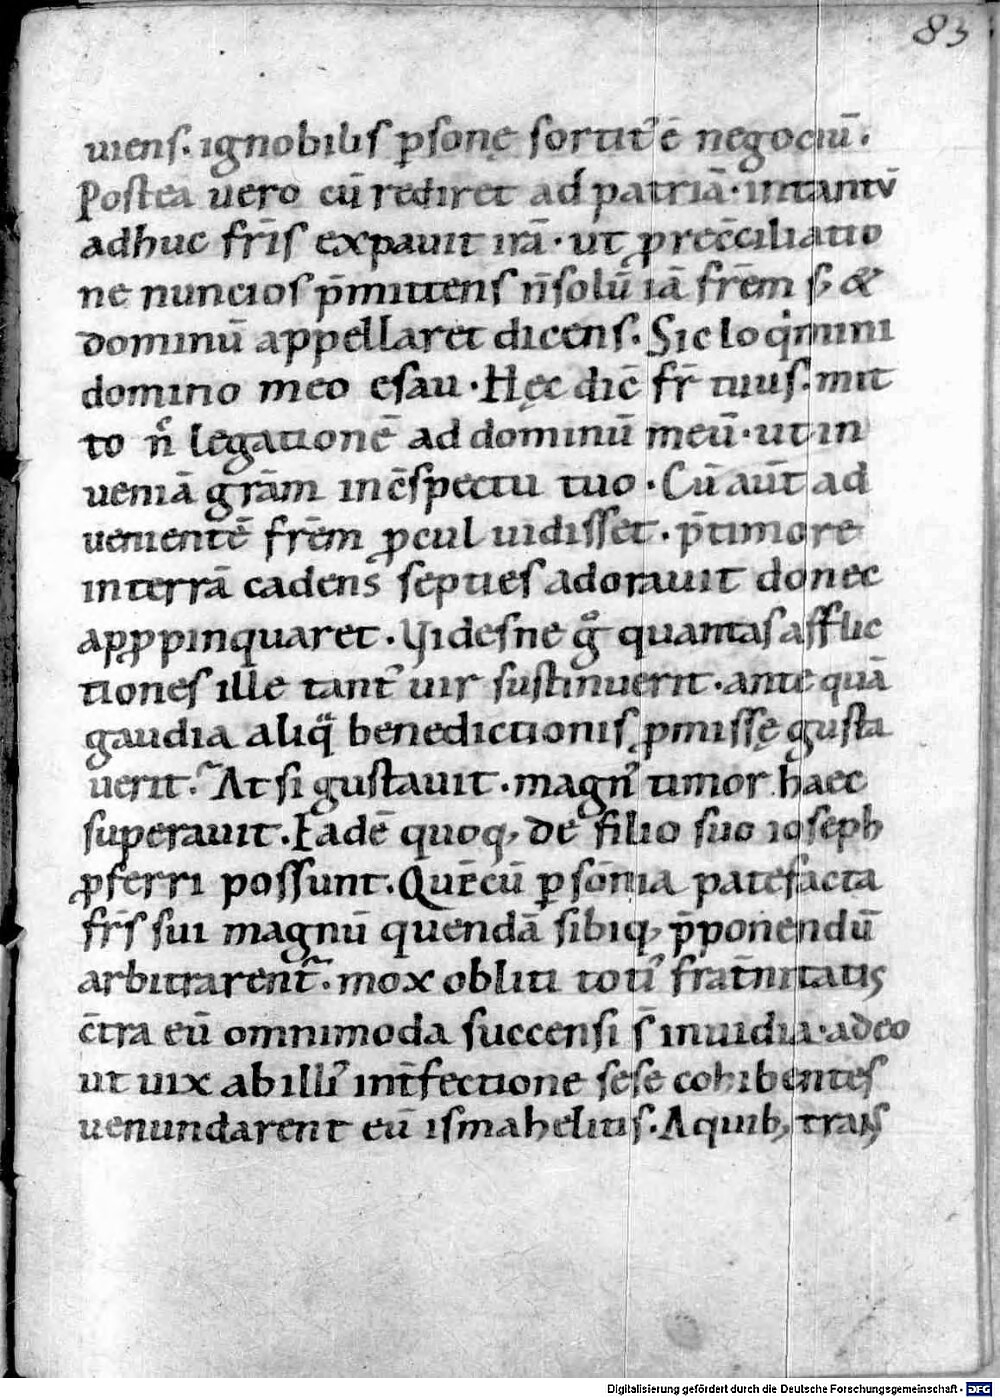 83
uiens. ignobilis ꝑsonę sortit᷒ ē negociū.
Postea uero cū rediret ad patriā. intantū
adhuc fr̄is expauit irā. ut ꝓ rec̄ciliatio
ne nuncios p̄mittens n̄ solū iā fr̄em s; &
dominū appellaret dicens. Sic loq̇mini
domino meo esau. Hęc dic̄ fr̄ tuus. mit
to n̄c legationē ad dominū meū. ut in
ueniā gr̄am inc̄spectu tuo. Cū aūt ad
uenientē fr̄em ꝓcul uidisset. p̄ timore
in terrā cadens septies adorauit donec
apꝓpinquaret. Videsne gͦ quantas afflic
tiones ille tant᷒ uir sustinuerit. ante quā
gaudia aliqͣ benedictionis ꝓmissę gusta
uerit? At si gustauit. magn᷒ timor haec
superauit. Eadē quoq; de filio suo ioseph
ꝓferri possunt. Qui cū ꝑ somnia patefacta
fr̄s sui magnū quendā sibiq; p̄ponendū
arbitrarent᷒. mox obliti toti᷒ frat̄nitatis
c̄tra eū omnimoda succensi s̄ inuidia. adeo
ut uix ab illi᷒ int̄fectione sese cohibentes
uenundarent eū ismahelitis. A quib; trans
Digitalisierung gefördert durch die Deutsche Forschungsgemeinschaft - DFG